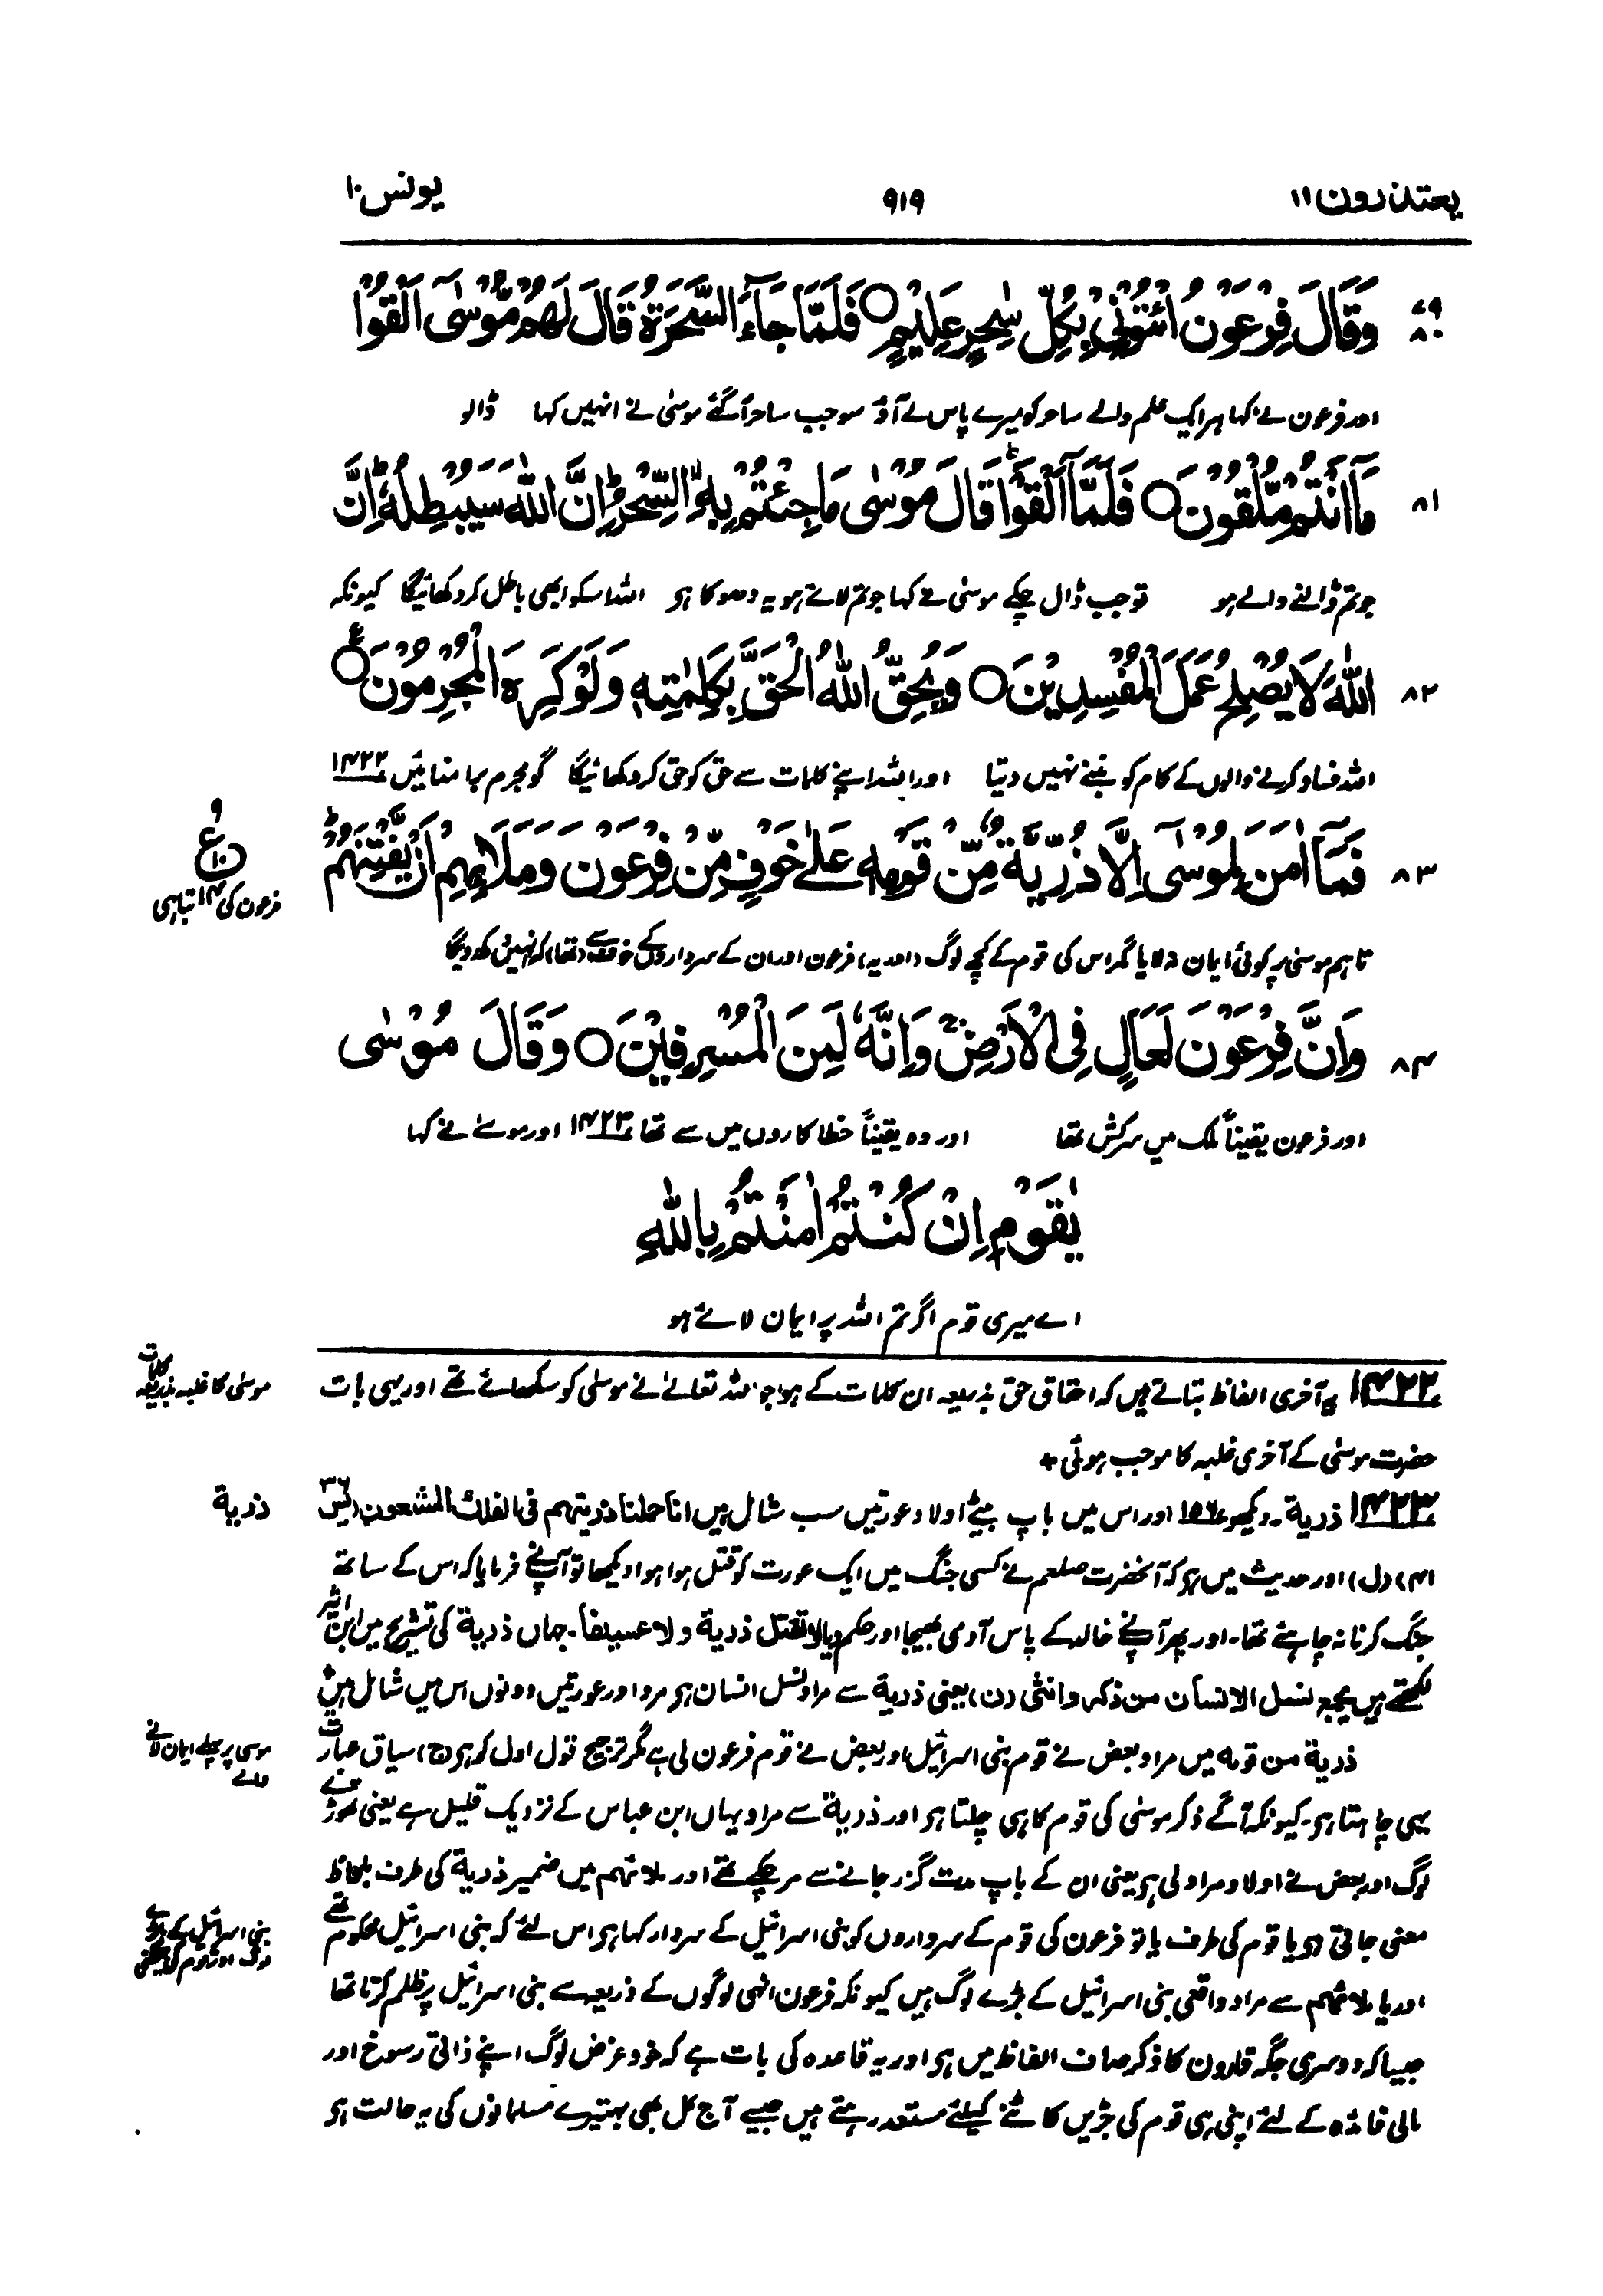 یعتذرون ۱۱ ۹۱۹ یونس ۱۰
۷۹ ۸۰ وَقَالَ فِرْعَوْنُ ائْتُوْنِیْ بِكُلِّ سٰحِرٍ عَلِیْمٍ ○ فَلَمَّا جَآءَ السَّحَرَةُ قَالَ لَهُمْ مُّوْسٰۤی اَلْقُوْا
اور فرعون نے کہا ہر ایک علم والے ساحر کو میرے پاس لے آؤ سو جب ساحر آگئے موسیٰ نے انہیں کہا ڈالو
۸۱ مَاۤ اَنْتُمْ مُّلْقُوْنَ ○ فَلَمَّاۤ اَلْقَوْا قَالَ مُوْسٰی مَا جِئْتُمْ بِهِ السِّحْرُ ؕ اِنَّ اللّٰهَ سَیُبْطِلُهٗ ؕ اِنَّ
جو تم ڈالنے والے ہو تو جب ڈال چکے موسیٰ نے کہا جو تم لائے ہو یہ دھوکا ہے اللہ اسکو ابھی باطل کر دکھائیگا کیونکہ
۸۲ اللّٰهَ لَا یُصْلِحُ عَمَلَ الْمُفْسِدِیْنَ ○ وَیُحِقُّ اللّٰهُ الْحَقَّ بِكَلِمٰتِهٖ وَلَوْ كَرِهَ الْمُجْرِمُوْنَ ○ ع
اللہ فساد کرنے والوں کے کام کو بننے نہیں دیتا اور اللہ اپنے کلمات سے حق کو حق کر دکھائیگا گو مجرم برا منائیں ۱۴۲۲
۹ ع ۱۰
۸۳ فَمَاۤ اٰمَنَ لِمُوْسٰۤی اِلَّا ذُرِّیَّةٌ مِّنْ قَوْمِهٖ عَلٰی خَوْفٍ مِّنْ فِرْعَوْنَ وَمَلَا۠ئِهِمْ اَنْ یَّفْتِنَهُمْ ؕ
فرعون کی ۱۴ تباہی
تاہم موسیٰ پر کوئی ایمان نہ لایا مگر اس کی قوم کے کچھ لوگ (اور یہ) فرعون اور ان کے سرداروں کے خوف سے (تھا) کہ انہیں دکھ دیگا
۸۴ وَاِنَّ فِرْعَوْنَ لَعَالٍ فِی الْاَرْضِ ۚ وَاِنَّهٗ لَمِنَ الْمُسْرِفِیْنَ ○ وَقَالَ مُوْسٰی
اور فرعون یقیناً ملک میں سرکش تھا اور وہ یقیناً خطاکاروں میں سے تھا ۱۴۲۳ اور موسےٰ نے کہا
یٰقَوْمِ اِنْ كُنْتُمْ اٰمَنْتُمْ بِاللّٰهِ
اے میری قوم اگر تم اللہ پر ایمان لائے ہو
موسیٰ کا غلبہ بذریعہ کلمات
۱۴۲۲ یہ آخری الفاظ بتاتے ہیں کہ احقاق حق بذریعہ ان کلمات کے ہوا جو اللہ تعالےٰ نے موسیٰ کو سکھائے تھے اور یہی بات
حضرت موسیٰ کے آخری غلبہ کا موجب ہوئی +
ذریة
۱۴۲۳ ذریة۔ دیکھو ۱۵۶ اور اس میں باپ بیٹے اولاد عورتیں سب شامل ہیں انا حملنا ذریتهم فی الفلك المشحون (یٰس ۳۶
۴۱) (ل) اور حدیث میں ہے کہ آنحضرت صلعم نے کسی جنگ میں ایک عورت کو قتل ہوا ہوا دیکھا تو آپنے فرمایا کہ اس کے ساتھ
جنگ کرنا نہ چاہئے تھا۔ اور پھر آپنے خالد کے پاس آدمی بھیجا اور حکم دیا لا تقتل ذریة ولا عسیفا۔ جہاں ذریة کی تشریح میں ابن اثیر
لکھتے ہیں یجمع نسل الانسان من ذکر وانثی (ن) یعنی ذریة سے مراد نسل انسان ہے مرد اور عورتیں دونوں اس میں شامل ہیں +
موسی پر پہلے ایمان لانے والے
ذریة من قومه میں مراد بعض نے قوم بنی اسرائیل اور بعض نے قوم فرعون لی ہے مگر ترجیح قول اول کو ہے (ج) سیاق عبارت
یہی چاہتا ہے۔ کیونکہ آگے ذکر موسیٰ کی قوم کا ہی چلتا ہے اور ذریة سے مراد یہاں ابن عباس کے نزدیک قلیل ہے یعنی تھوڑے
لوگ اور بعض نے اولاد مراد لی ہے یعنی ان کے باپ مدت گزر جانے سے مر چکے تھے اور ملائهم میں ضمیر ذریة کی طرف بلحاظ
بنی اسرائیل کے بڑے لوگ اور قوم کی
معنی جاتی ہے یا قوم کی طرف یا تو فرعون کی قوم کے سرداروں کو بنی اسرائیل کے سردار کہا ہے اس لئے کہ بنی اسرائیل محکوم تھے
اور یا ملائهم سے مراد واقعی بنی اسرائیل کے بڑے لوگ ہیں کیونکہ فرعون انہی لوگوں کے ذریعہ سے بنی اسرائیل پر ظلم کرتا تھا
جیسا کہ دوسری جگہ قارون کا ذکر صاف الفاظ میں ہے اور یہ قاعدہ کی بات ہے کہ خود غرض لوگ اپنے ذاتی رسوخ اور
مالی فائدہ کے لئے اپنی ہی قوم کی جڑیں کاٹنے کیلئے مستعد رہتے ہیں جیسے آج کل بھی بہتیرے مسلمانوں کی یہ حالت ہے